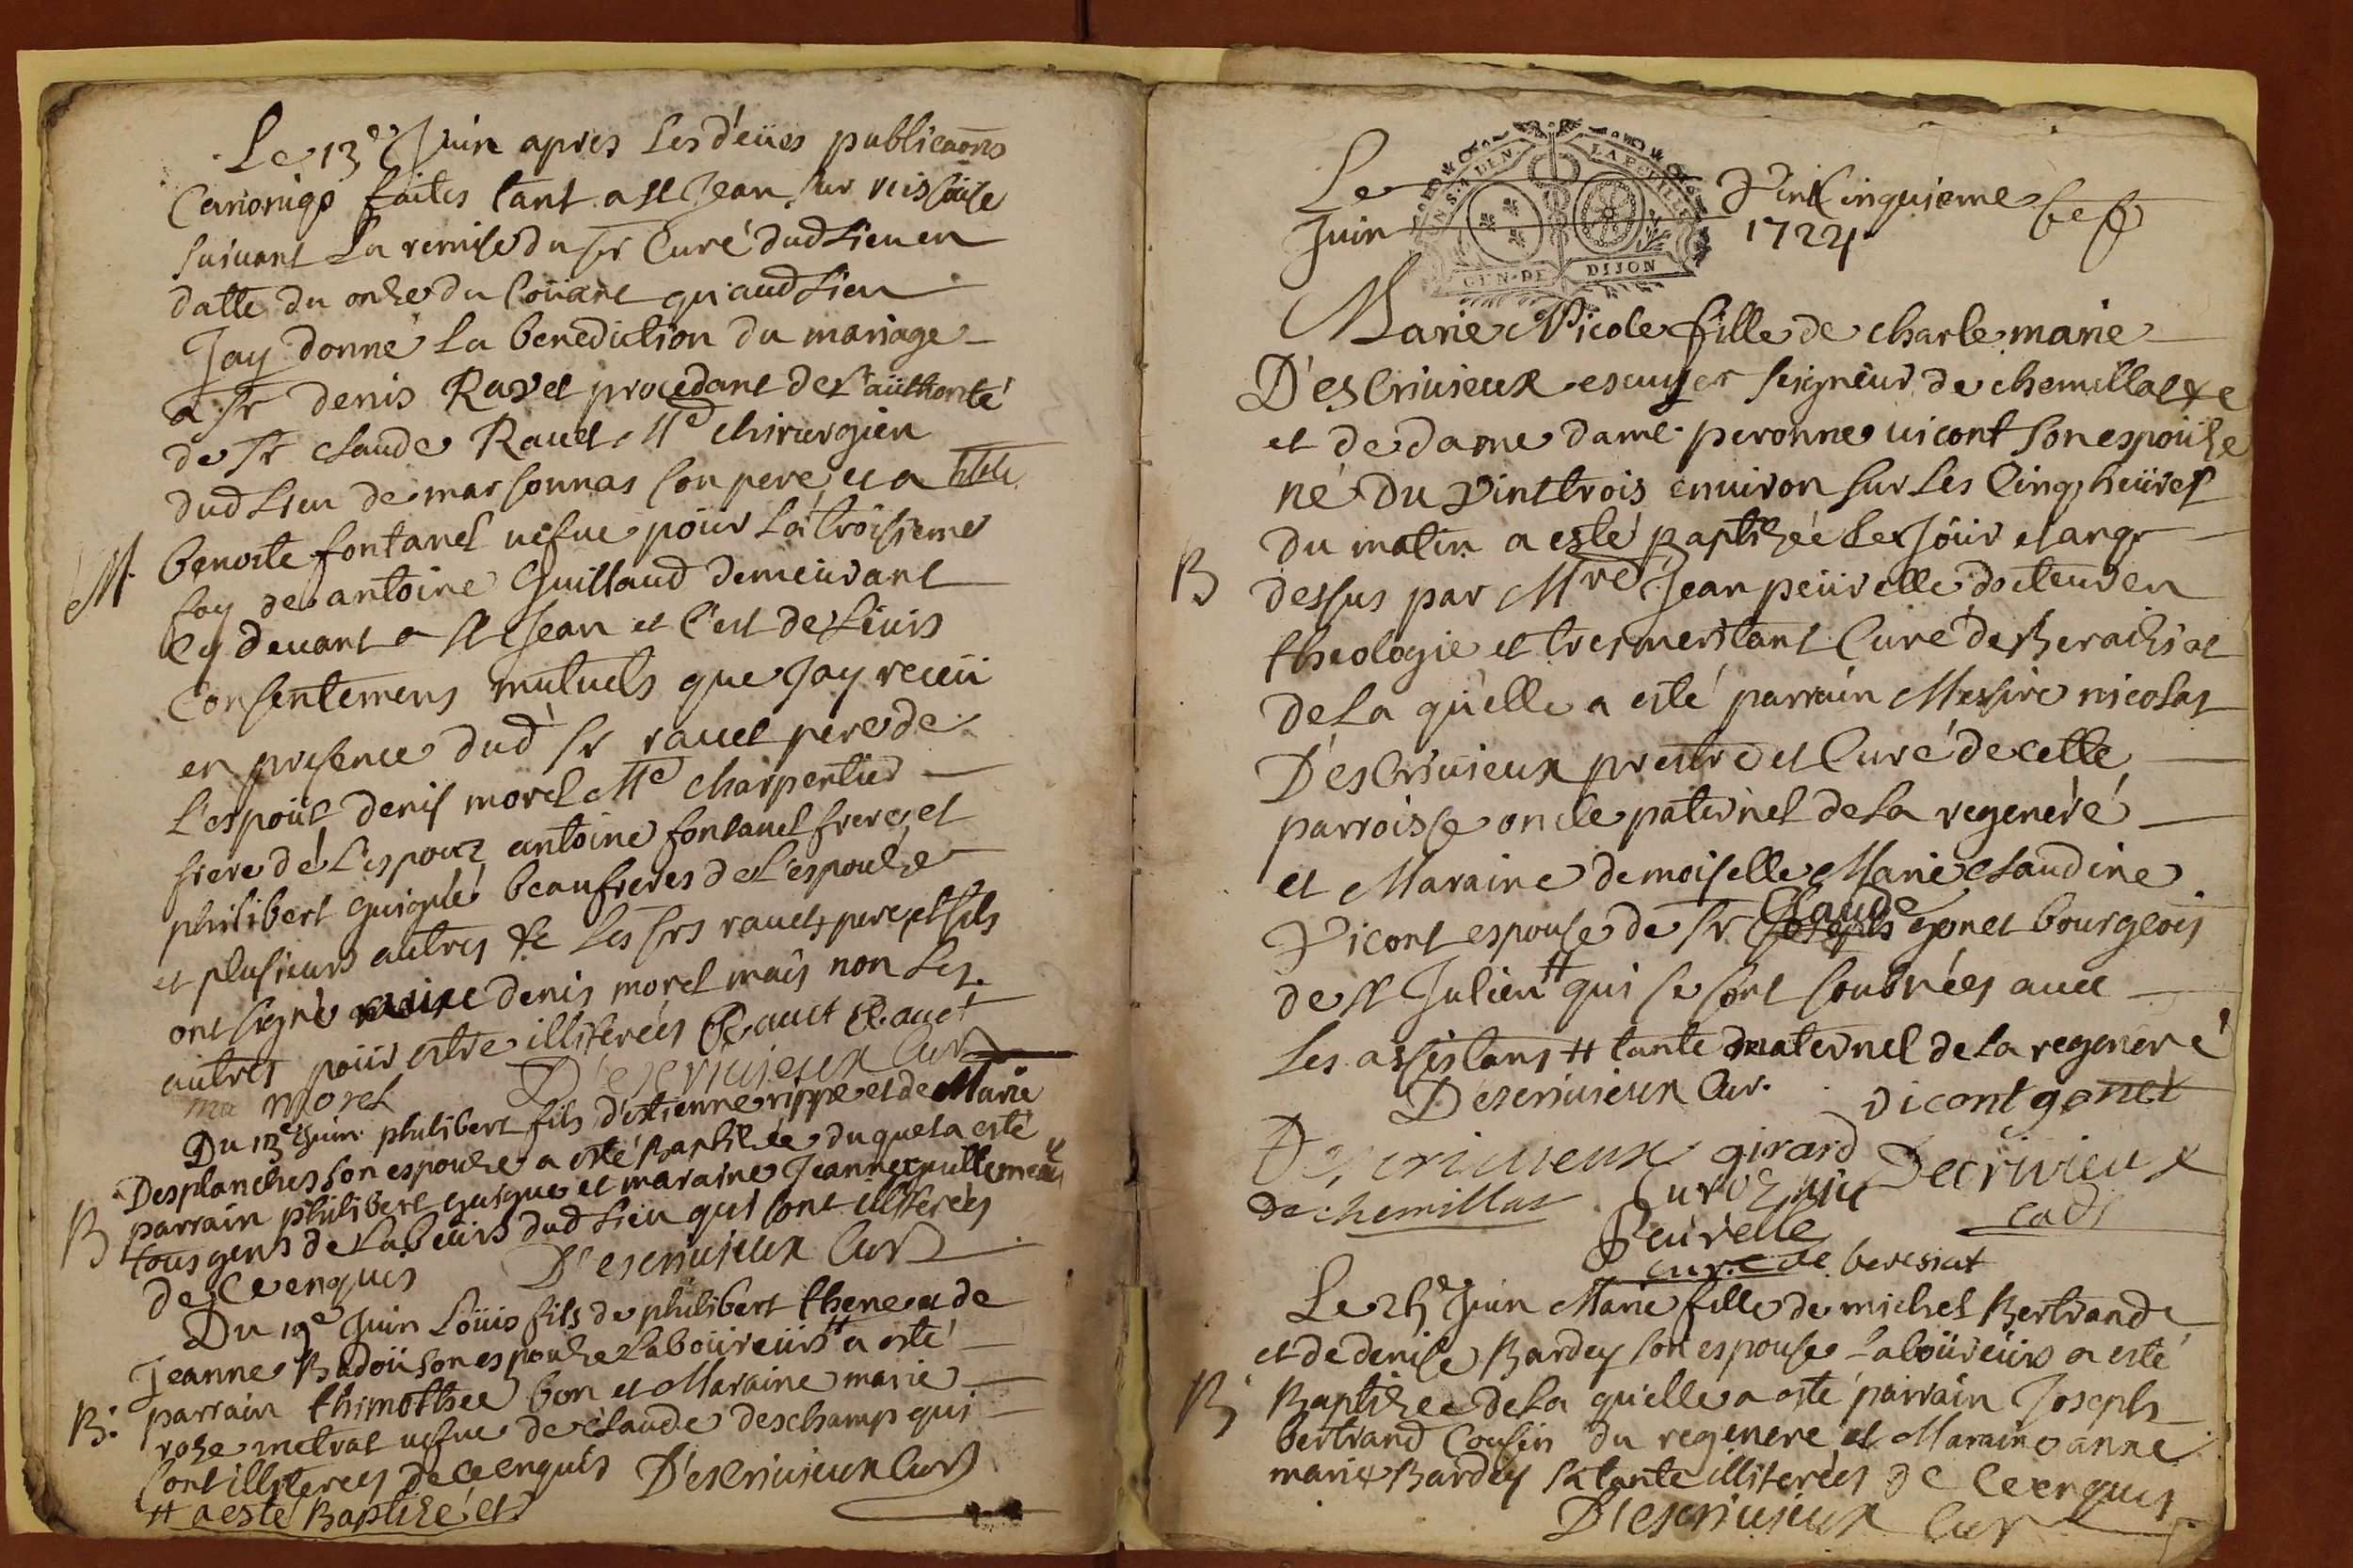 Le 13e Juin apres les d'eües publicaõns
Canoniqs faites tant a st Jean sur veissouse
suivant la remise du sr Curé dud lieu en
datte du onze du Coüant qu'aud lieu
Jay donné la benediction du mariage
a sr denis Ravet procedant de l'aüthorité
de sr claude Ravet Me chirurgien
dud lieu de marsonnas son pere, et a
M benoite fontanel vefue poür la troisieme
foy de antoine Guillaud demeürant
Cy devant a st Jean et C'est de leürs
Consentemens mutuels que Jay receü
en presence dud sr ravet pere de
L'espoüs denis morel Me charpentier
frere de L'espoux antoine fontanel frere, et
philibert guigue beaufreres de L'espouze
et plusieurs autres &c les srs ravets pere, et fils
ont signé denis morel mais non les
autres poür estre illiterées Ravet Ravet
morel D'escrivieux Cur
Du 13e Juin philibert fils d'estienne rippe et de Marie
Desplanches son espouze a esté Baptizée duquel a esté
B parrain philibert guigue et maraine Jeanne guillemeau
tous gens de Labeürs dud lieu qui sont illiterées
de Ceenques D'escrivieux Cur
Du 19e Juin Loüis fils de philibert thene et de
Jeanne Badoü son espouze Laboüreürs # a esté
B. parrain thimothee bon et Maraine marie
roze metrat vefue de claude deschamps qui
sont illiterees de Ceenques D'escrivieux Cur
# a esté Baptizé et
GEN. DE DIJON
Le Vint Cinquieme
Juin 1724
Marie Nicole fille de charle marie
D'escrivieux escuyer seigneur de chemillat &c
et de dame dame peronne vicont son espoüze
né du vint trois environ sur les Cinq heüres
du matin a esté baptizée le Joür et an q
B dessus par Mre Jean peürelle docteur en
theologie et tres meritant Curé de Beraiziat
de la quelle a esté parrain Messire nicolas
D'escrivieux prestre et Curé de cette
parroisse oncle paternel de la regeneré
et Maraine demoiselle Marie claudine
Vicont espouse de sr Claude gonet bourgeois
de st Julien # qui se sont soubnées avec
les assistans # tante maternel de la regeneré
Descrivieux Cur. vicont gonet
Descrivieux girard Decrivieux
de chemillat cadt
Peurelle
curé de beresiat
Le 25e Juin Marie fille de michel Bertrand
et de denise Bardey son espouse Laboüreürs a esté
B Baptizee de la quelle a esté parrain Joseph
bertrand Cousin du regenere et Maraine anne
marie Bardey sa tante illiterées de Ceenques
D'escrivieux Cur